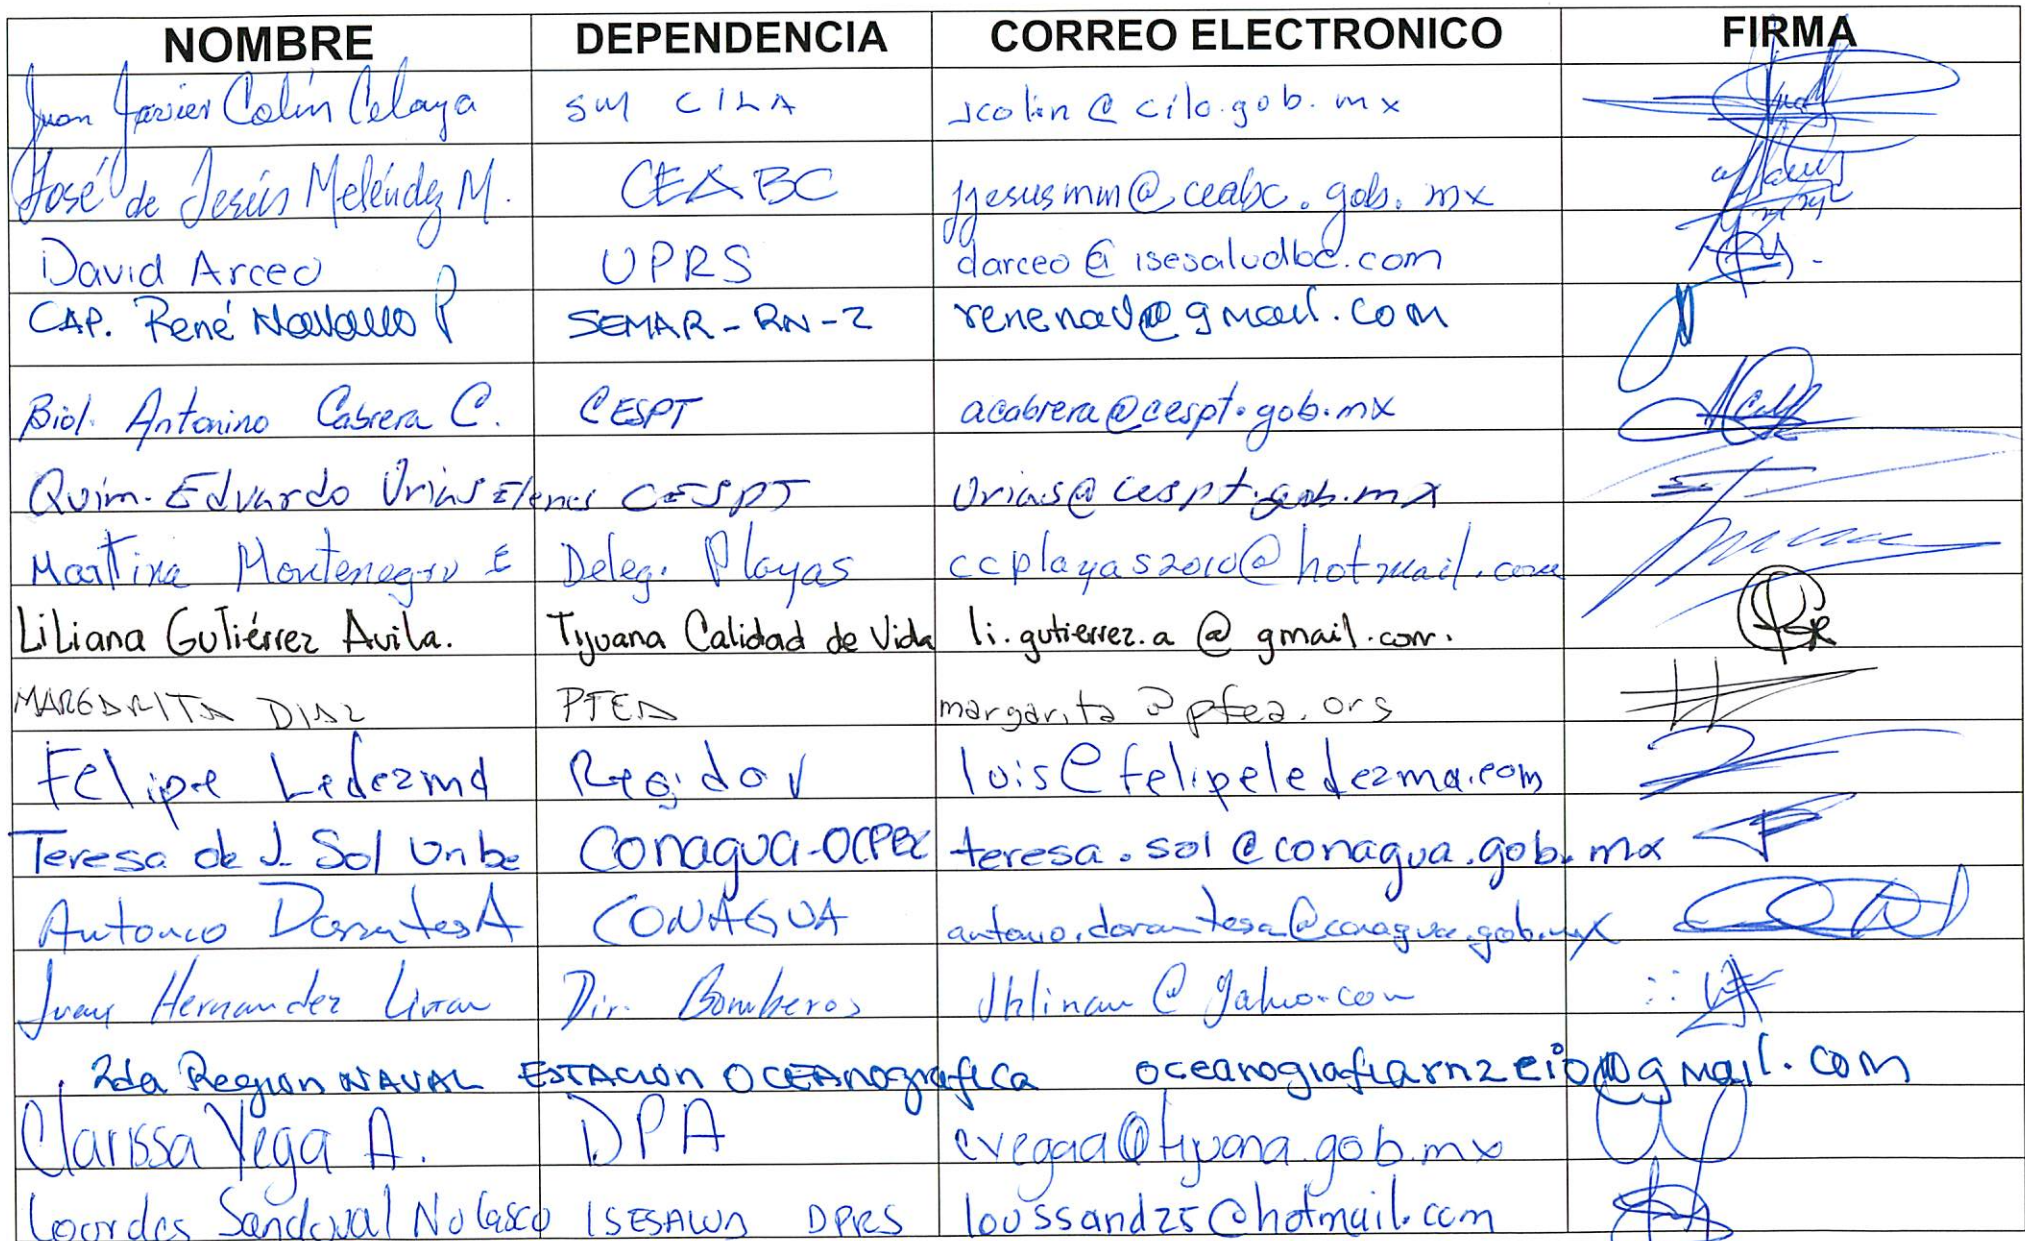 NOMBRE DEPENDENCIA CORREO ELECTRONICO FIRMA
Juan Javier Colín Celaya SM CILA jcolin@cila.gob.mx
José de Jesús Meléndez M. CEABC jjesusmm@ceabc.gob.mx
David Arceo UPRS darceo@isesaludbc.com
CAP. René Navarro P SEMAR-RN-2 renenav@gmail.com
Biol. Antonino Cabrera C. CESPT acabrera@cespt.gob.mx
Quim. Eduardo Urias Elenes CESPT urias@cespt.gob.mx
Martina Montenegro E Deleg. Playas ccplayas2010@hotmail.com
Liliana Gutiérrez Avila. Tijuana Calidad de Vida li.gutierrez.a@gmail.com.
MARGARITA DIAZ PFEA margarita@pfea.org
Felipe Ledezma Regidor luis@felipeledezma.com
Teresa de J. Sol Uribe Conagua-OCPBC teresa.sol@conagua.gob.mx
Antonio Dorantes A CONAGUA antonio.dorantesa@conagua.gob.mx
Juan Hernandez Dir. Bomberos
2da Region NAVAL ESTACION OCEANOgrafica oceanografiarn2eio@gmail.com
Clarissa Vega A. DPA cvegaa@tijuana.gob.mx
Lourdes Sandoval Nolasco ISESALUD DPRS loussand25@hotmail.com